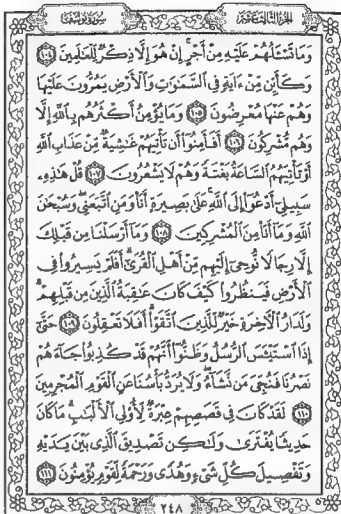 الجزء الثالث عشر سورة يوسف
وَمَا تَسْـَٔلُهُمْ عَلَيْهِ مِنْ أَجْرٍ ۚ إِنْ هُوَ إِلَّا ذِكْرٌ لِّلْعَـٰلَمِينَ ١٠٤
وَكَأَيِّن مِّنْ ءَايَةٍ فِى ٱلسَّمَـٰوَٰتِ وَٱلْأَرْضِ يَمُرُّونَ عَلَيْهَا
وَهُمْ عَنْهَا مُعْرِضُونَ ١٠٥ وَمَا يُؤْمِنُ أَكْثَرُهُم بِٱللَّهِ إِلَّا
وَهُم مُّشْرِكُونَ ١٠٦ أَفَأَمِنُوٓا۟ أَن تَأْتِيَهُمْ غَـٰشِيَةٌ مِّنْ عَذَابِ ٱللَّهِ
أَوْ تَأْتِيَهُمُ ٱلسَّاعَةُ بَغْتَةً وَهُمْ لَا يَشْعُرُونَ ١٠٧ قُلْ هَـٰذِهِۦ
سَبِيلِىٓ أَدْعُوٓا۟ إِلَى ٱللَّهِ ۚ عَلَىٰ بَصِيرَةٍ أَنَا۠ وَمَنِ ٱتَّبَعَنِى ۖ وَسُبْحَـٰنَ
ٱللَّهِ وَمَآ أَنَا۠ مِنَ ٱلْمُشْرِكِينَ ١٠٨ وَمَآ أَرْسَلْنَا مِن قَبْلِكَ
إِلَّا رِجَالًا نُّوحِىٓ إِلَيْهِم مِّنْ أَهْلِ ٱلْقُرَىٰٓ ۗ أَفَلَمْ يَسِيرُوا۟ فِى
ٱلْأَرْضِ فَيَنظُرُوا۟ كَيْفَ كَانَ عَـٰقِبَةُ ٱلَّذِينَ مِن قَبْلِهِمْ ۗ
وَلَدَارُ ٱلْـَٔاخِرَةِ خَيْرٌ لِّلَّذِينَ ٱتَّقَوْا۟ ۗ أَفَلَا تَعْقِلُونَ ١٠٩ حَتَّىٰٓ
إِذَا ٱسْتَيْـَٔسَ ٱلرُّسُلُ وَظَنُّوٓا۟ أَنَّهُمْ قَدْ كُذِبُوا۟ جَآءَهُمْ
نَصْرُنَا فَنُجِّىَ مَن نَّشَآءُ ۖ وَلَا يُرَدُّ بَأْسُنَا عَنِ ٱلْقَوْمِ ٱلْمُجْرِمِينَ
١١٠ لَقَدْ كَانَ فِى قَصَصِهِمْ عِبْرَةٌ لِّأُو۟لِى ٱلْأَلْبَـٰبِ ۗ مَا كَانَ
حَدِيثًا يُفْتَرَىٰ وَلَـٰكِن تَصْدِيقَ ٱلَّذِى بَيْنَ يَدَيْهِ
وَتَفْصِيلَ كُلِّ شَىْءٍ وَهُدًى وَرَحْمَةً لِّقَوْمٍ يُؤْمِنُونَ ١١١
٢٤٨